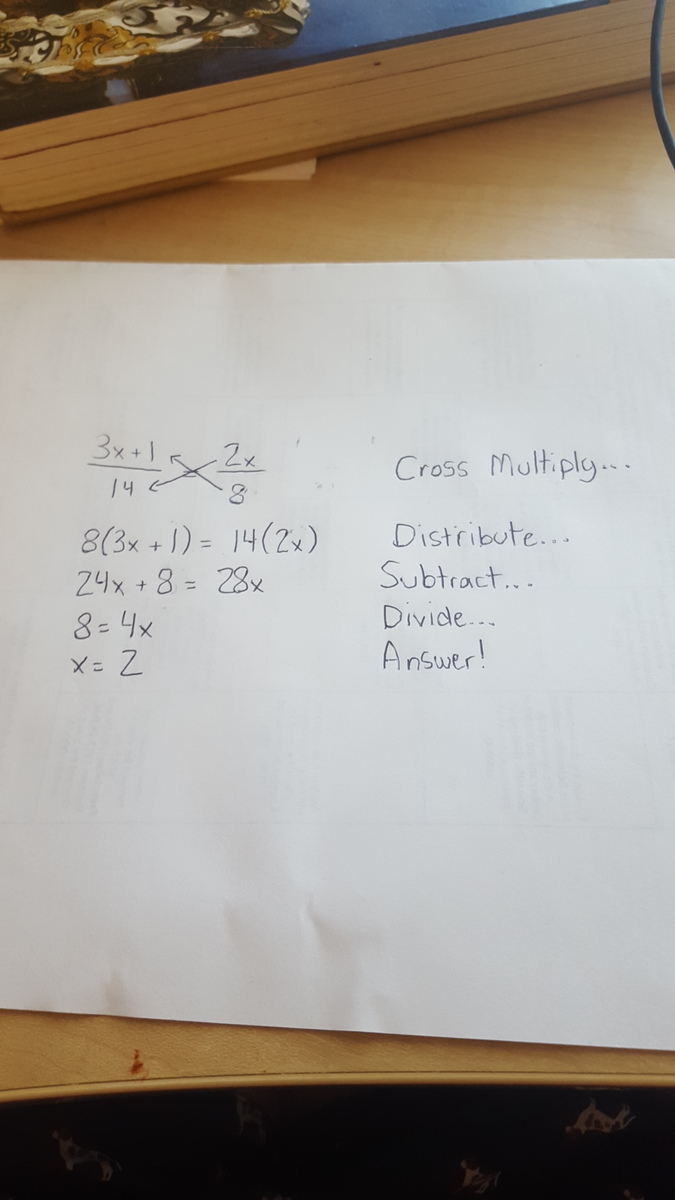 3x+1 2x Cross Multiply...
14 8
8(3x+1) = 14(2x) Distribute...
24x + 8 = 28x Subtract...
8 = 4x Divide...
x = 2 Answer!